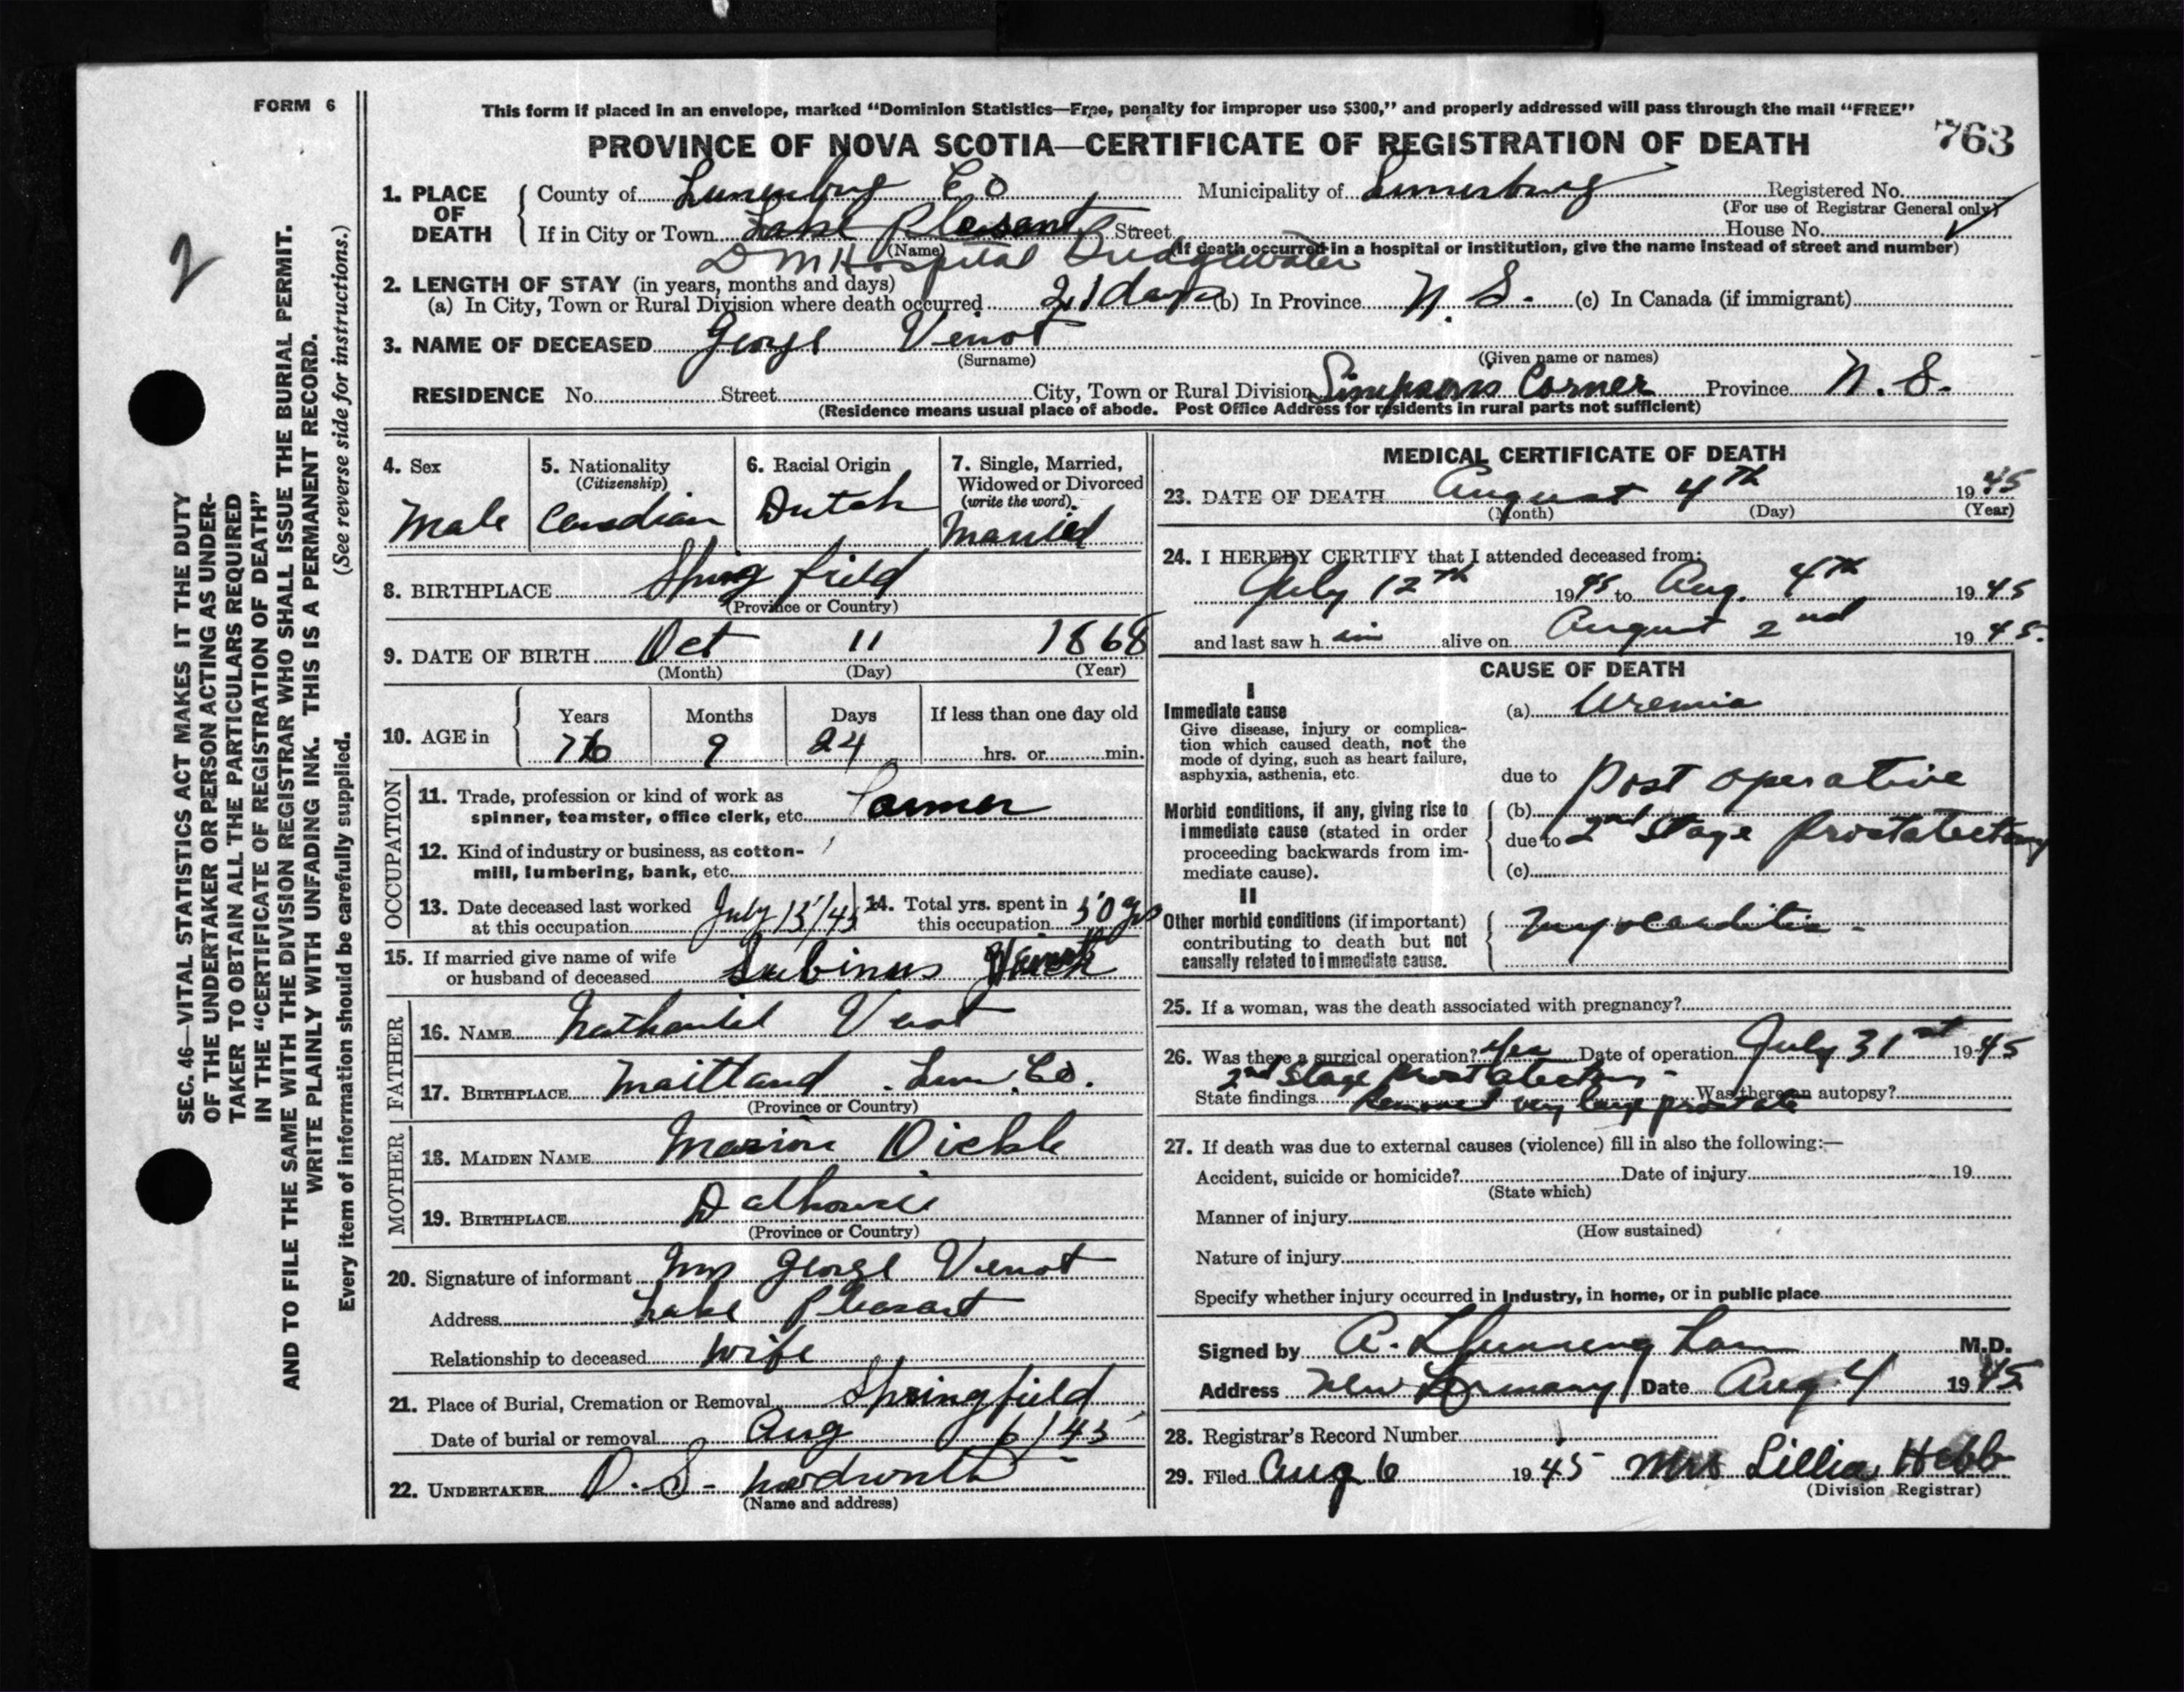 FORM 6
This form if placed in an envelope, marked "Dominion Statistics—Free, penalty for improper use $300," and properly addressed will pass through the mail "FREE"
PROVINCE OF NOVA SCOTIA—CERTIFICATE OF REGISTRATION OF DEATH
763
2
SEC. 46—VITAL STATISTICS ACT MAKES IT THE DUTY
OF THE UNDERTAKER OR PERSON ACTING AS UNDER-
TAKER TO OBTAIN ALL THE PARTICULARS REQUIRED
IN THE "CERTIFICATE OF REGISTRATION OF DEATH"
AND TO FILE THE SAME WITH THE DIVISION REGISTRAR WHO SHALL ISSUE THE BURIAL PERMIT.
WRITE PLAINLY WITH UNFADING INK. THIS IS A PERMANENT RECORD.
Every item of information should be carefully supplied. (See reverse side for instructions.)
1. PLACE OF DEATH County of Lunenburg Co Municipality of Lunenburg Registered No.
(For use of Registrar General only)
If in City or Town Lake Plesant Street House No.
(Name) (If death occurred in a hospital or institution, give the name instead of street and number)
D M Hospital Bridgewater
2. LENGTH OF STAY (in years, months and days)
(a) In City, Town or Rural Division where death occurred 21 days (b) In Province N. S. (c) In Canada (if immigrant)
3. NAME OF DECEASED George Venot
(Surname) (Given name or names)
RESIDENCE No. Street City, Town or Rural Division Simpsons Corner Province N. S.
(Residence means usual place of abode. Post Office Address for residents in rural parts not sufficient)
4. Sex Male
5. Nationality (Citizenship) Canadian
6. Racial Origin Dutch
7. Single, Married, Widowed or Divorced (write the word) Married
8. BIRTHPLACE Springfield
(Province or Country)
9. DATE OF BIRTH Oct 11 1868
(Month) (Day) (Year)
10. AGE in Years Months Days If less than one day old
76 9 24 hrs. or min.
OCCUPATION
11. Trade, profession or kind of work as
spinner, teamster, office clerk, etc. Farmer
12. Kind of industry or business, as cotton-
mill, lumbering, bank, etc.
13. Date deceased last worked at this occupation July 13/45 14. Total yrs. spent in this occupation 50 yrs
15. If married give name of wife
or husband of deceased
FATHER
16. NAME Nathaniel Venot
17. BIRTHPLACE Maitland Lun. Co.
(Province or Country)
MOTHER
18. MAIDEN NAME Marion
19. BIRTHPLACE Dalhousie
(Province or Country)
20. Signature of informant Mrs George Venot
Address Lake Pleasant
Relationship to deceased Wife
21. Place of Burial, Cremation or Removal Springfield
Date of burial or removal Aug 6/45
22. UNDERTAKER D. S.
(Name and address)
MEDICAL CERTIFICATE OF DEATH
23. DATE OF DEATH August 4th 1945
(Month) (Day) (Year)
24. I HEREBY CERTIFY that I attended deceased from:
July 12th 1945 to Aug. 4th 1945
and last saw him alive on August 2nd 1945.
CAUSE OF DEATH
I
Immediate cause
Give disease, injury or complica-
tion which caused death, not the
mode of dying, such as heart failure,
asphyxia, asthenia, etc.
(a) Uremia
due to Post operative
Morbid conditions, if any, giving rise to
immediate cause (stated in order
proceeding backwards from im-
mediate cause).
(b)
due to 2nd Stage Prostatectomy
(c)
II
Other morbid conditions (if important)
contributing to death but not
causally related to immediate cause.
Myocarditis -
25. If a woman, was the death associated with pregnancy?
26. Was there a surgical operation? Yes Date of operation July 31st 1945
2nd Stage Prostatectomy -
State findings Removed very large prostate Was there an autopsy?
27. If death was due to external causes (violence) fill in also the following:—
Accident, suicide or homicide? Date of injury 19
(State which)
Manner of injury
(How sustained)
Nature of injury
Specify whether injury occurred in Industry, in home, or in public place
Signed by M.D.
Address New Germany Date Aug 4 1945
28. Registrar's Record Number
29. Filed Aug 6 1945 Mrs Lillia Hebb
(Division Registrar)